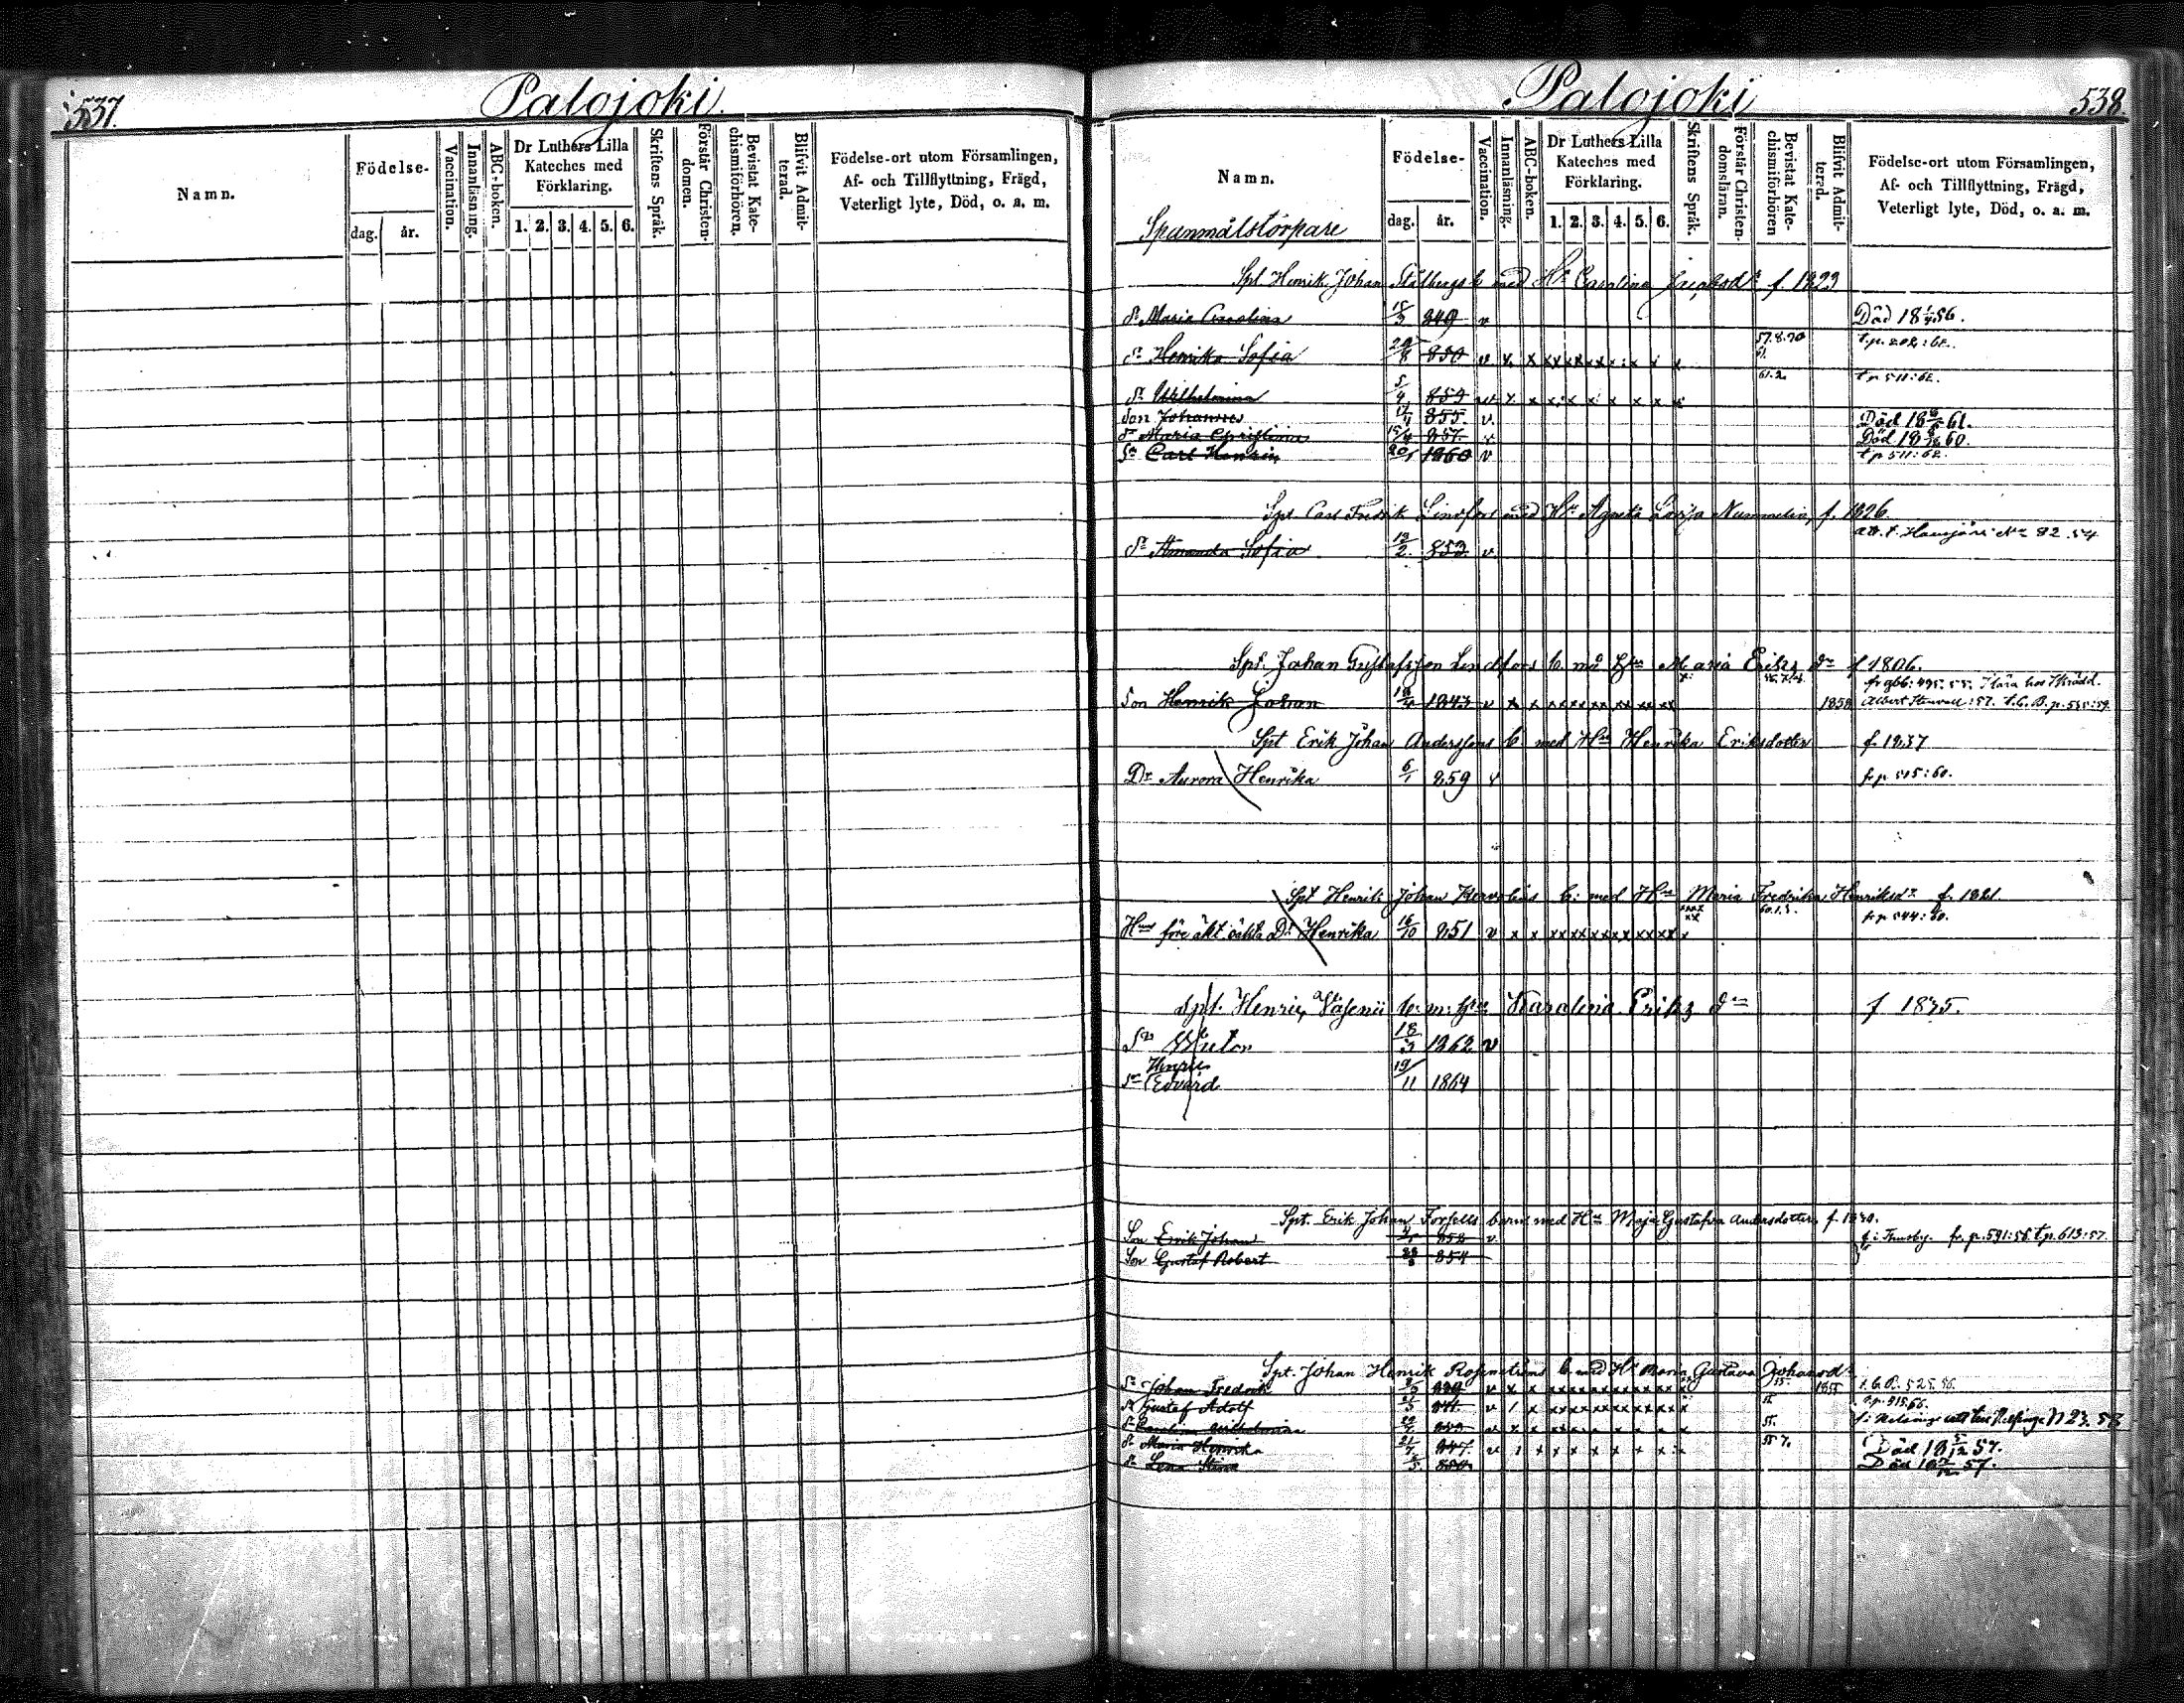 537.
Palojoki.
Namn.
Födelse-
dag.
år.
Vaccination.
Innanläsning.
ABC-boken.
Dr Luthers Lilla
Kateches med
Förklaring.
1. 2. 3. 4. 5. 6.
Skriftens Språk.
Förstår Christen-
domen.
Bevistat Kate-
chismiförhören.
Blifvit Admit-
terad.
Födelse-ort utom Församlingen,
Af- och Tillflyttning, Frägd,
Veterligt lyte, Död, o. a. m.
Palojoki
538.
Namn.
Födelse-
dag.
år.
Vaccination.
Innanläsning.
ABC-boken.
Dr Luthers Lilla
Kateches med
Förklaring.
1. 2. 3. 4. 5. 6.
Skriftens Språk.
Förstår Christen-
domsläran.
Bevistat Kate-
chismiförhören
Blifvit Admit-
tered.
Födelse-ort utom Församlingen,
Af- och Tillflyttning, Frägd,
Veterligt lyte, Död, o. a. m.
Spanmålstorpare
Spt Henrik Johan Stålbergs b med Hu Carolina Jacobsdr f 1823
Dr Maria Carolina 15/3 849 v Död 56.
Dr Henrika Sofia 850 v x x x x x x x 57.8.90 61. t.p. 202:62.
Dr Wilhelmina 5/4 853 61.2. t p 511:62.
Son Johannes 855. v. Död 61.
Dr Maria Christina 857. v Död 60.
Sn Carl Henric 1860 v t p 511:62.
Spt Carl Fredrik Lindfors med Hu Agneta Lovisa Nummelin, f. 1826.
Dr Amanda Sofia 12/2 853 v att. t. Hausjärvi No 82. 54
Spt. Johan Gustafsson Lindfors b. må hu Maria Eriks dr f 1806.
Son Henrik Johan 1843 v x x x x x x x x 1858 fr gbb: 495. 55. i lära hos Skrädd.
Albert Stenvall: 57. t.C.B. p. 535:59.
Spt Erik Johan Anderssons b med Hu Henrika Eriksdotter f. 1837
Dr Aurora Henrika 6/1 859 v fr p 515:60.
Spt Henrik Johan b: med Hu Maria Fredrika Henriksdr f. 1821.
Hus före äkt. oäkta Dr Henrika 16/10 851 v x x x x x x x x x 60.1.3. fr p 544:60.
Spt. Henric b. m: hu Karolina Eriks dr f 1835.
Sn Victor 18/3 1862 v
Henric
Sn Edvard 19/11 1864
Spt. Erik Johan Forsells barn med Hu Maja Gustafva Andersdotter, f. 1830.
Son Erik Johan 852 v f: i Thusby. fr. p. 591:56. t p. 613:57.
Son Gustaf Robert 854
Spt. Johan Henrik Rosenströms b. med Hu Maria Gustava Johansdr
Sn Johan Fredrik 839 v x x 55. 1855 t. C B. 525. 56.
Sn Gustaf Adolf 841. v 1 x 55. t. p.
Dr Carolina Wilhelmina 55. N 23. 58
Dr Maria Henrika 847. v 1 x x x x x x x 55 7. Död 18 5/12 57.
Dr Lena Stina 850 Död 57.